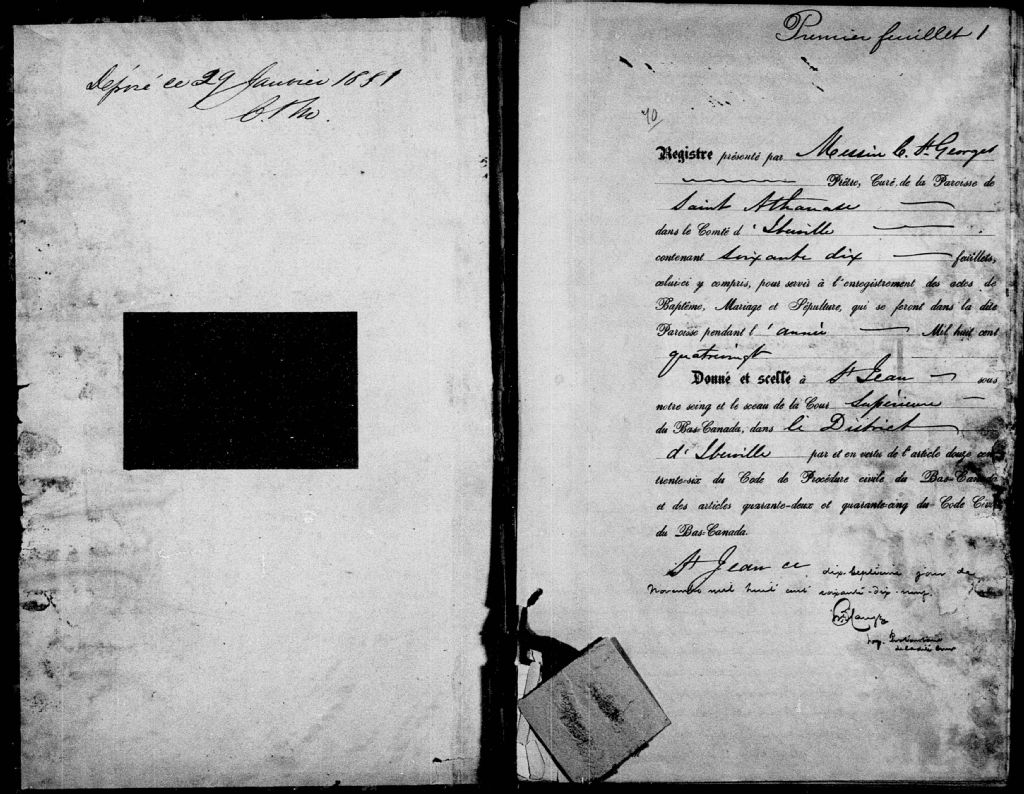 Déposé ce 29 Janvier 1881
Premier feuillet 1
70
Registre présenté par Messire C. St Georges
Prêtre, Curé de la Paroisse de
Saint Athanase
dans le Comté d'Iberville
contenant soixante dix feuillets,
celui-ci y compris, pour servir à l'enregistrement des actes de
Baptême, Mariage et Sépulture, qui se feront dans la dite
Paroisse pendant l'année Mil huit cent
quatrevingt
Donné et scellé à St Jean sous
notre seing et le sceau de la Cour Supérieure
du Bas-Canada, dans le District
d'Iberville par et en vertu de l'article douze cent
trente-six du Code de Procédure civile du Bas-Canada
et des articles quarante-deux et quarante-cinq du Code Civil
du Bas-Canada.
St Jean ce dix-septième jour de
Novembre mil huit cent soixante-dix-neuf.
Dep. Protonotaire
de ladite Cour